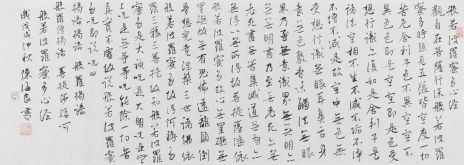 般若波羅蜜多心經
觀自在菩薩行深般若波羅
蜜多時照見五蘊皆空度一切
苦厄舍利子色不異空空不
異色色即是空空即是色受
想行識亦復如是舍利子是
諸法空相不生不滅不垢不淨
不增不減是故空中無色無
受想行識無眼耳鼻舌身
意無色聲香味觸法無眼
界乃至無意識界無無明
亦無無明盡乃至無老死亦無
老死盡無苦集滅道無智亦
無得以無所得故菩提薩埵依
般若波羅蜜多故心無罣礙無
罣礙故無有恐怖遠離顛倒
夢想究竟涅槃三世諸佛依
般若波羅蜜多故得阿耨多羅
三藐三菩提故知般若波羅
蜜多是大神咒是大明咒是
無上咒是無等等咒能除一切苦
真實不虛故說般若波羅蜜
多咒即說咒曰
揭諦揭諦 般羅揭諦
般羅僧揭諦 菩提薩婆訶
般若波羅蜜多心經
戊戌仲秋 陳海良書